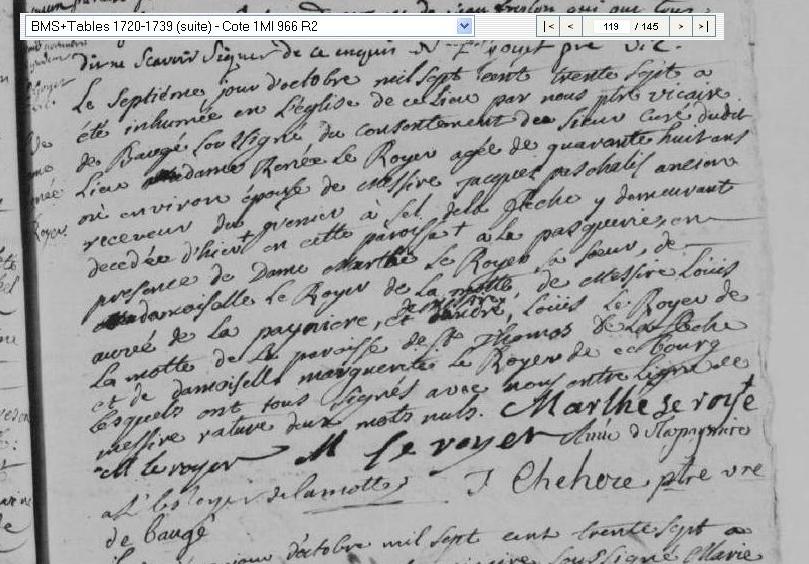 BMS+Tables 1720-1739 (suite) - Cote 1MI 966 R2
|< < 119 / 145 > >|
Le septième jour d'octobre mil sept cent trente sept a
été inhumée en L'église de ce Lieu par nous ptre vicaire
de Baugé soussigné du consentement de sieur curé dudit
Lieu dame Renée Le Royer agée de quarante huit ans
ou environ épouse de Messire jacques paschalis ancien
receveur du grenier à sel de la fleche y demeurant
decedée d'hier + en cette paroisse + a la pasqueries en
presence de Dame Marthe Le Royer sa soeur, de
damoiselle Le Royer de la motte de Messire Loüis
auvé de la payniere, et Loüis Le Royer de
La motte de La paroisse de St Thomas de La fleche
et de damoiselle marguerite Le Royer de ce bourg
lesquels ont tous signés avec nous entre ligne
messire rature deux mots nuls. Marthe Le roye
M le royer M Le royer
de la motte J Chehere ptre vre
de baugé
jour d'octobre mil sept cent trente sept a
soussigné Marie